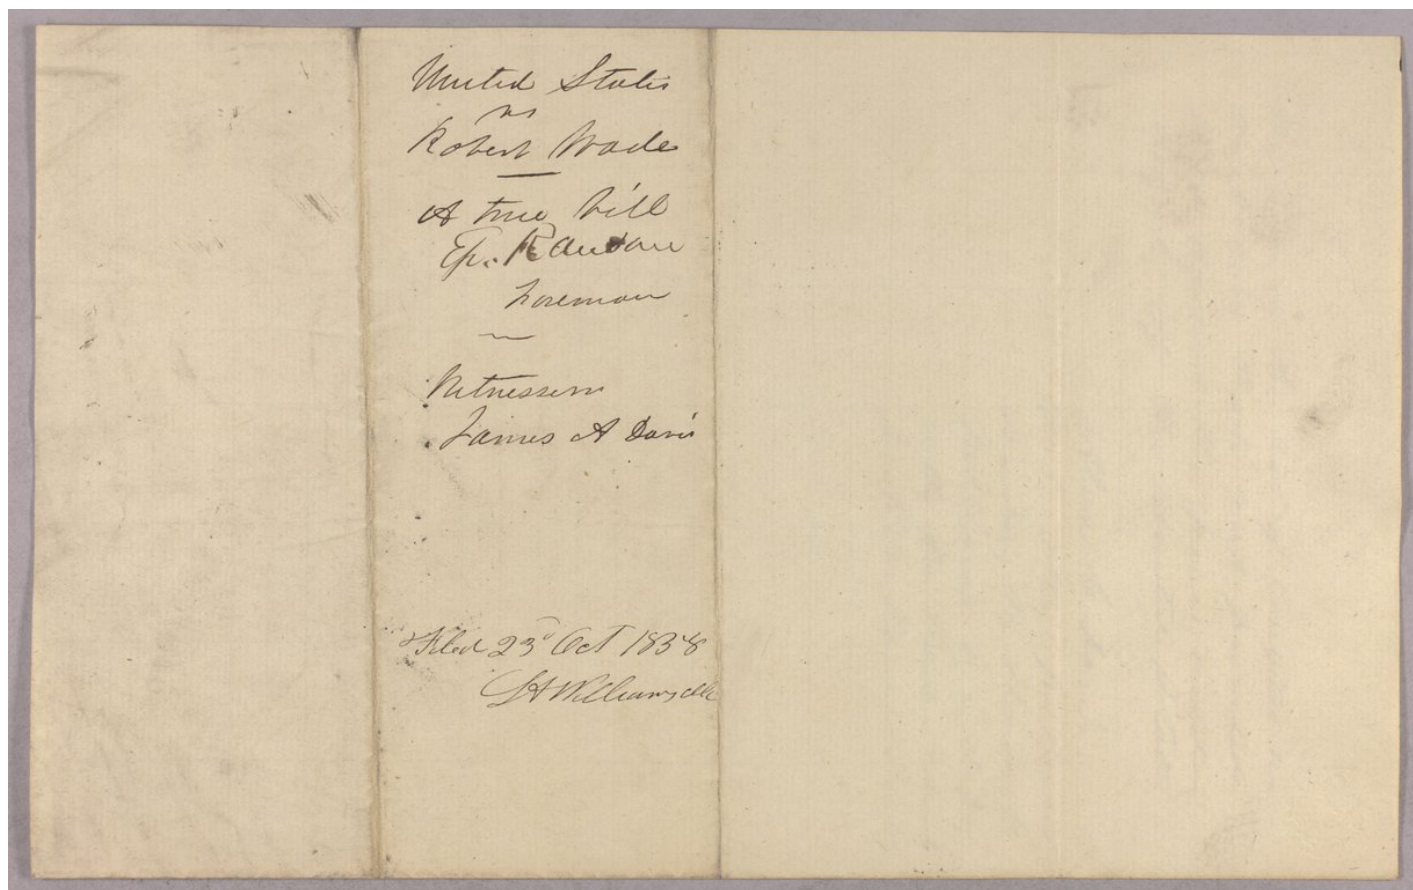 United States
vs
Robert Wade
A true bill
Ep. Ransom
Foreman
Witnesses
James A Davis
Filed 23d Oct 1838
S H Williams clk